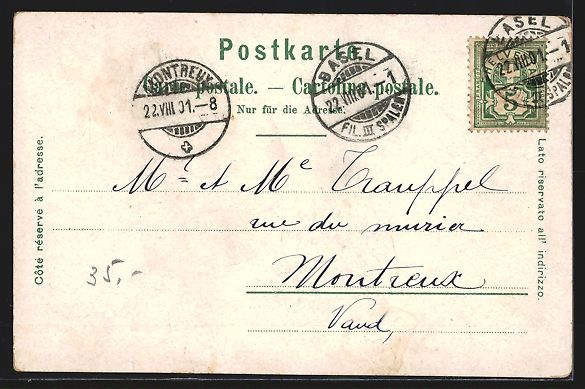 Postkarte.
Carte postale. — Cartolina postale.
Nur für die Adresse.
MONTREUX
22.VIII.01.–8
BASEL
22.VIII.01.–1
FIL. III SPALEN
BASEL
22.VIII.01.–1
5
Côté réservé à l'adresse.
Lato riservato all' indirizzo.
Mr et Me Trauppel
rue du murier
Montreux
Vaud,
35,-